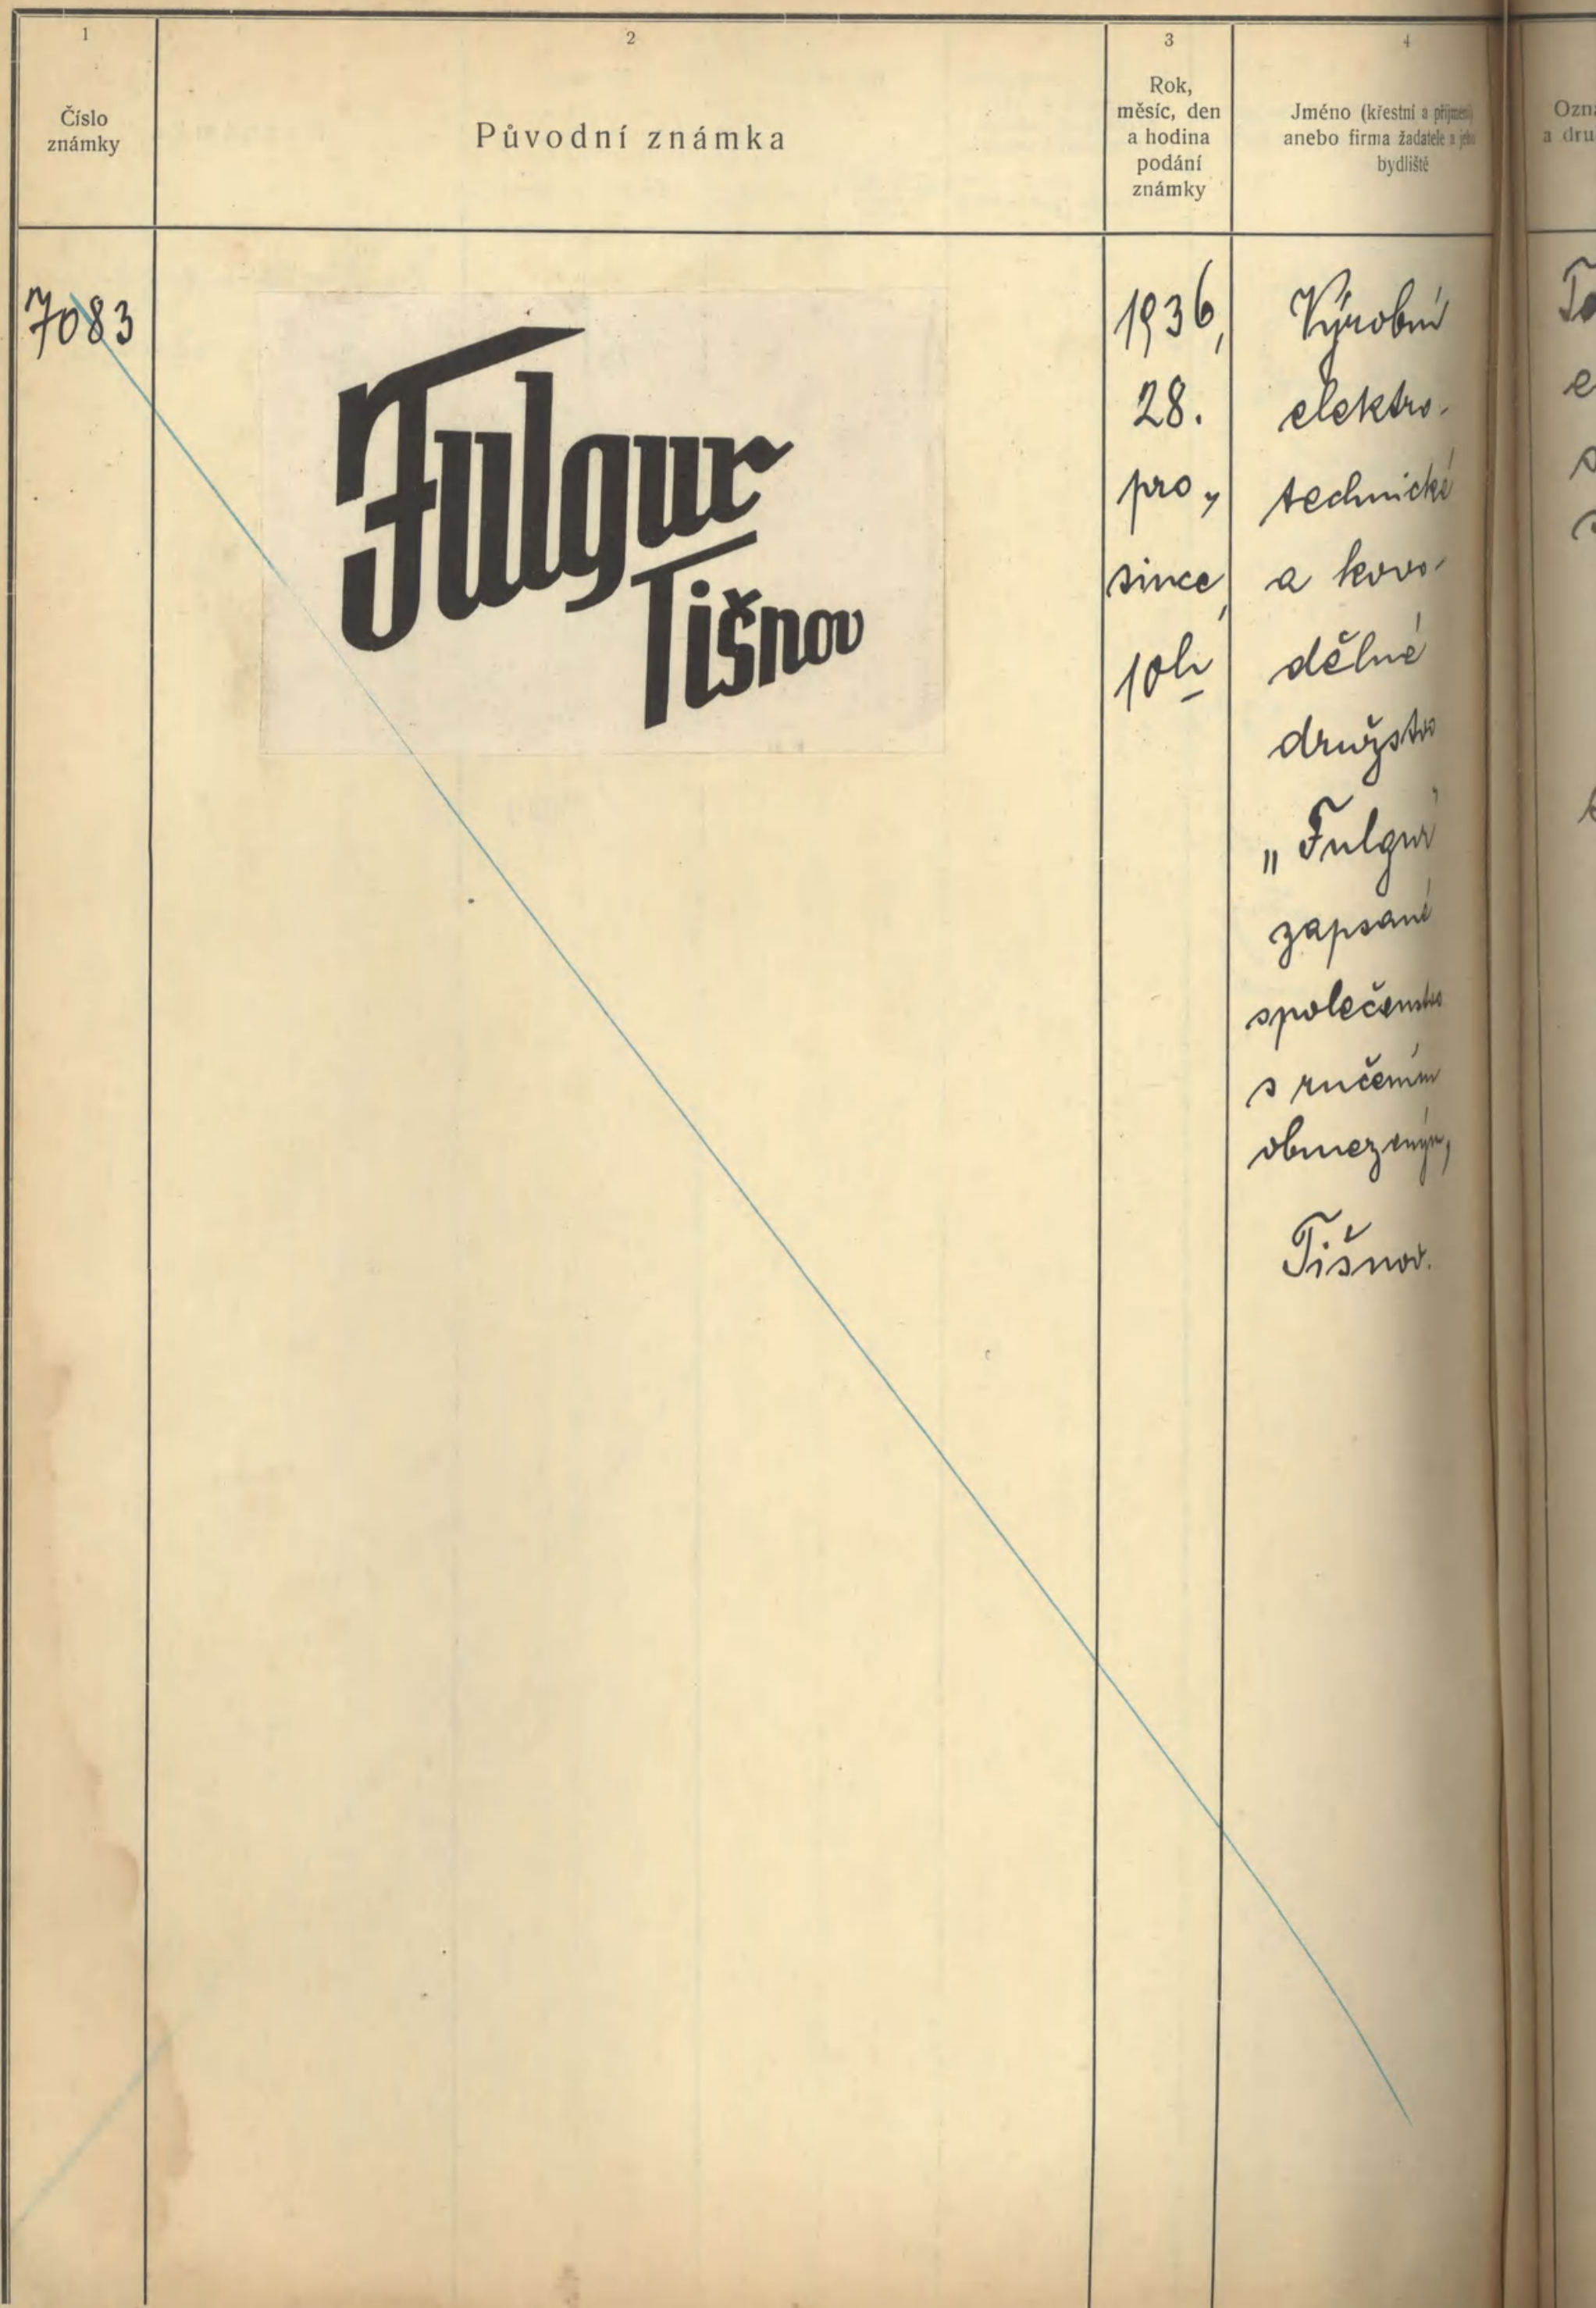 1
Číslo
známky
2
Původní známka
3
Rok,
měsíc, den
a hodina
podání
známky
4
Jméno (křestní a příjmení)
anebo firma žadatele a jeho
bydliště
7083
Fulgur
Tišnov
1936,
28.
pro„
since,
10h
Výrobní
elektro-
technické
a kovo-
dělné
družstvo
„Fulgur“
zapsané
společenstvo
s ručením
obmezeným,
Tišnov.